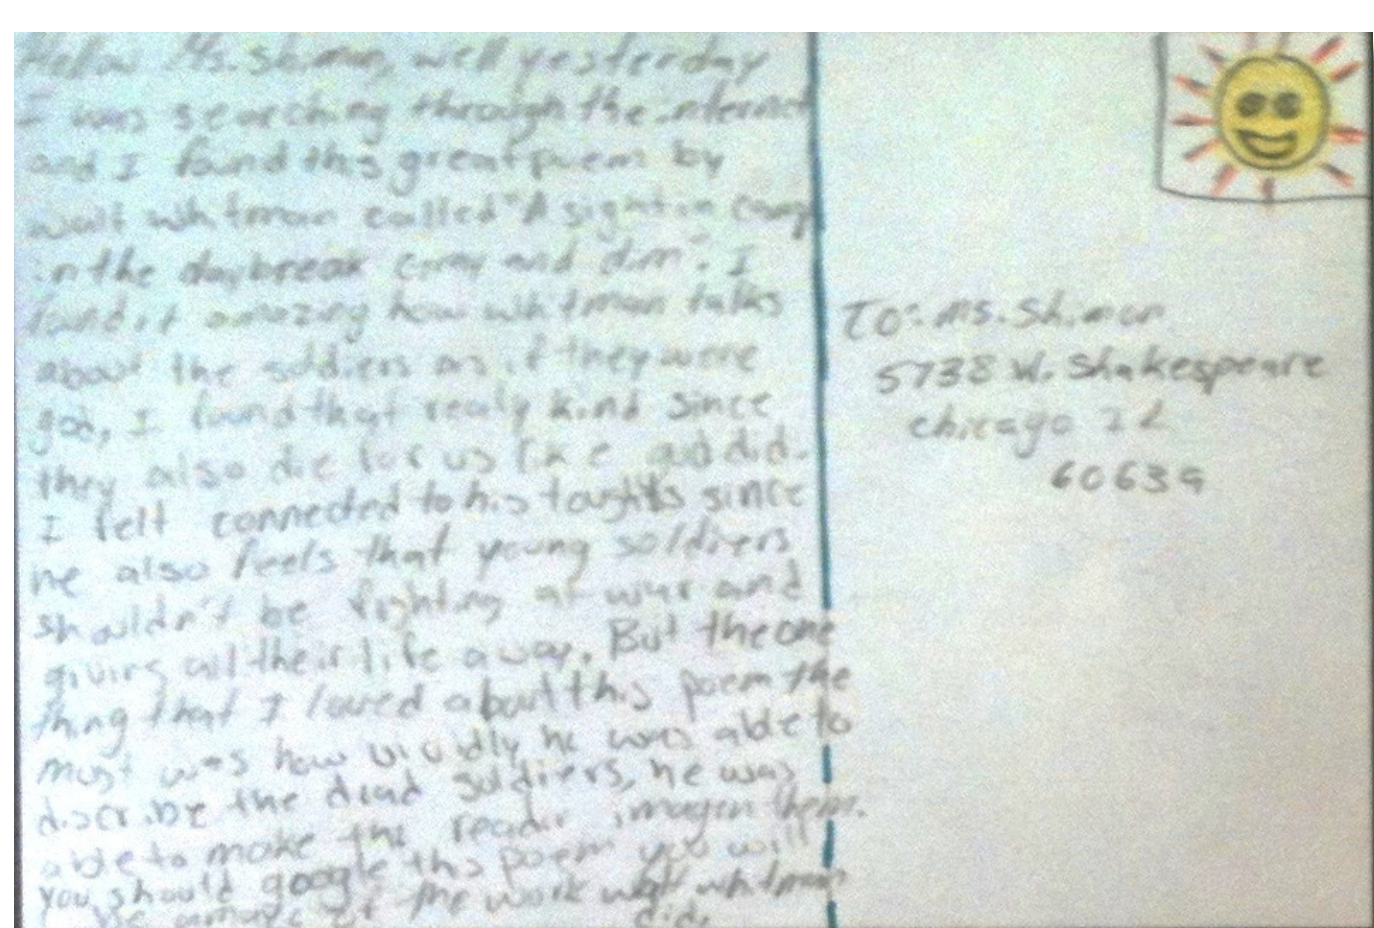 Hellow Ms. Shimon, well yesterday
I was searching through the internet
and I found this great poem by
walt whitman called "A sight in camp
in the daybreak Gray and dim". I
found it amazing how whitman talks
about the soldiers as if they were
god, I found that realy kind since
they also die for us like god did.
I felt connected to his toughts since
he also feels that young soldiers
shouldn't be fighting at war and
giving all their life away. But the one
thing that I loved about this poem the
most was how vividly he was able to
discribe the dead soldiers, he was
able to make the reader imagen them.
You should google this poem you will
be amaze of the work walt whitman
did.
To: Ms. Shimon
5738 W. Shakespeare
chicago IL
60639